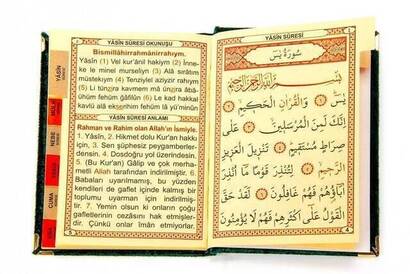 YÂSÎN SÛRESİ OKUNUŞU
Bismillâhirrahmânirrahym.
Yâsîn (1) Vel kur'ânil hakiym (2) İnne-
ke le minel murseliyn (3) Alâ sırâtım
müstekıym (4) Tenziylel aziyzir rahıym.
(5) Li tünzira kavmem mâ ünzira âbâ-
ühüm fehüm ğâfilûn (6) Le kad hakkal
kavlü alâ ekserihim fehüm lâ yü'minûn
YÂSÎN SÛRESİ ANLAMI
Rahman ve Rahim olan Allah'ın İsmiyle.
1. Yâsîn, 2. Hikmet dolu Kur'an hakkı
için, 3. Sen şüphesiz peygamberler-
densin. 4. Dosdoğru yol üzerindesin.
5. (Bu Kur'an) Gâlip ve çok merha-
metli Allah tarafından indirilmiştir. 6.
Babaları uyarılmamış, bu yüzden
kendileri de gaflet içinde kalmış bir
toplumu uyarman için indirilmiş-
tir. 7. Yemin olsun ki onların çoğu
gafletlerinin cezasını hak etmişler-
dir. Çünkü onlar İman etmiyorlar.
YÂSÎN
MÜLK
NEBE
CUMA
YÂSÎN SÛRESİ
سُورَةُ يٰسٓ
بِسْمِ اللّٰهِ الرَّحْمٰنِ الرَّحِيمِ
يٰسٓ ﴿١﴾ وَالْقُرْاٰنِ الْحَكِيمِ ﴿٢﴾
اِنَّكَ لَمِنَ الْمُرْسَلِينَ ﴿٣﴾ عَلٰى
صِرَاطٍ مُسْتَقِيمٍ ﴿٤﴾ تَنْزِيلَ الْعَزِيزِ
الرَّحِيمِ ﴿٥﴾ لِتُنْذِرَ قَوْمًا مَٓا اُنْذِرَ
اٰبَٓاؤُهُمْ فَهُمْ غَافِلُونَ ﴿٦﴾ لَقَدْ حَقَّ
الْقَوْلُ عَلٰٓى اَكْثَرِهِمْ فَهُمْ لَا يُؤْمِنُونَ
4